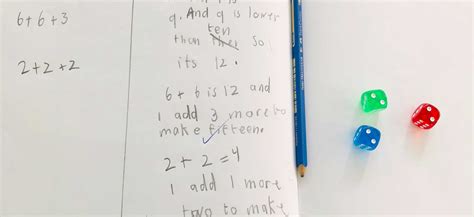 6+6+3
2+2+2
9. And 9 is lower
than ten So
its 12.
6 + 6 is 12 and
I add 3 more to
make fifteen.
2 + 2 = 4
I add 1 more
two to make